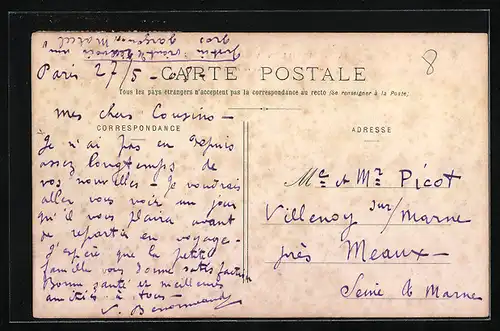 Paris 27/5-08
CARTE POSTALE
Tous les pays étrangers n'acceptent pas la correspondance au recto (Se renseigner à la Poste)
mes chers Cousins -
CORRESPONDANCE
Je n'ai pas eu depuis
assez longtemps de
vos nouvelles - Je voudrais
aller vous voir un jour
qu'il vous plaira avant
de repartir en voyage -
J'espère que la petite
famille vous donne satisfaction
Bonne santé et meilleures
amitiés à tous -
ADRESSE
Me et Mr Picot
Villenoy sur/Marne
près Meaux -
Seine & Marne
8